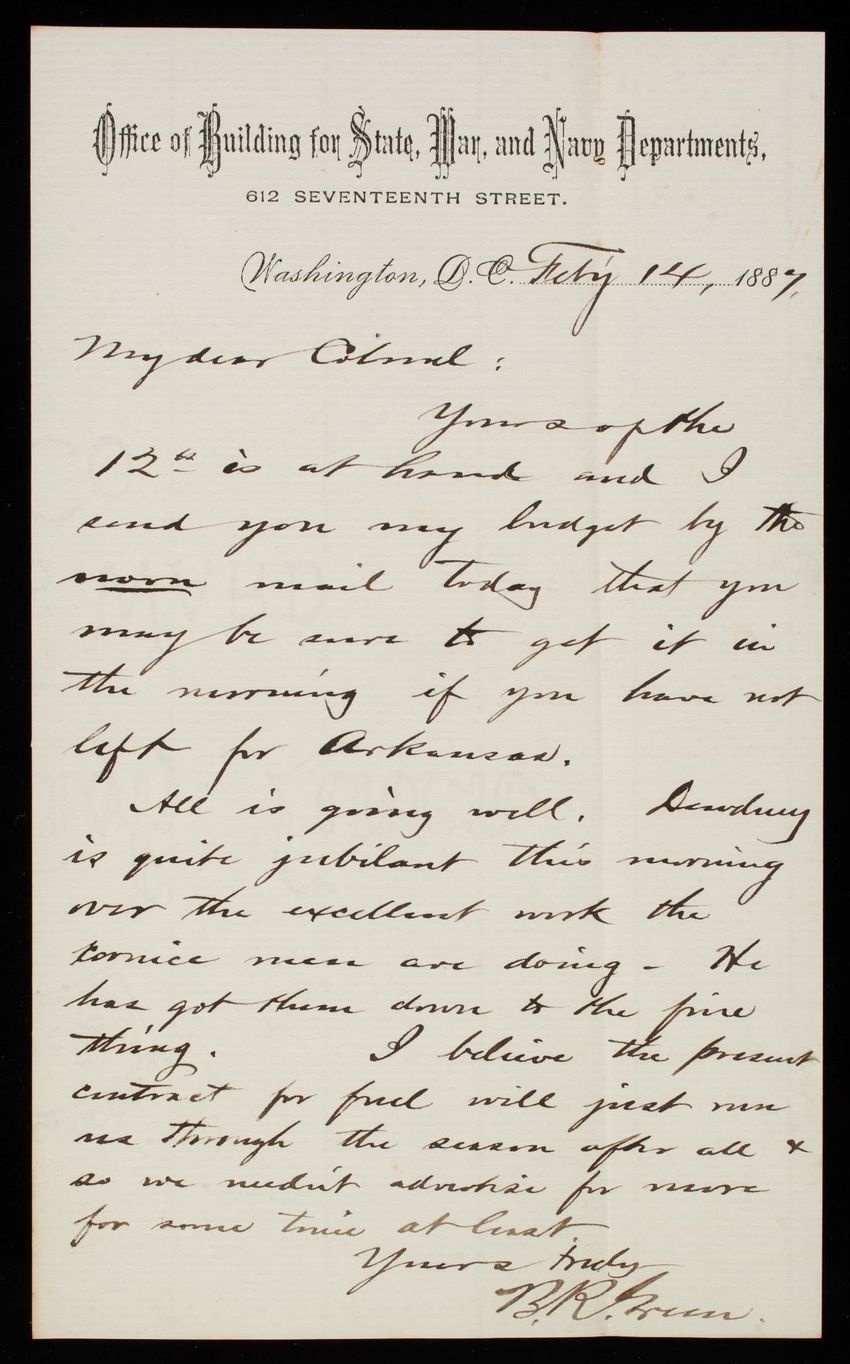 Office of Building for State, War, and Navy Departments,
612 SEVENTEENTH STREET.
Washington, D.C. Feb'y 14, 1887,
My dear Colonel :
Yours of the
12th is at hand and I
send you my budget by the
noon mail today that you
may be sure to get it in
the morning if you have not
left for Arkansas.
All is going well. Dewdney
is quite jubilant this morning
over the excellent work the
cornice men are doing - He
has got them down to the fine
thing. I believe the present
contract for fuel will just run
us through the season after all &
so we needn't advertise for more
for some time at least
Yours truly
B.R. Green.